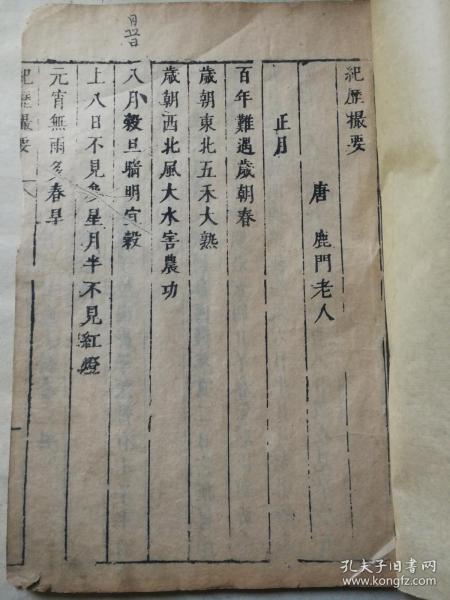 紀歷撮要
唐 鹿門老人
正月
百年難遇歲朝春
歲朝東北五禾大熟
歲朝西北風大水害農功
八月穀旦晴明宜穀
上八日不見參星月半不見紅燈
元宵無雨多春旱
紀歷撮要
孔夫子旧书网
www.kongfz.com